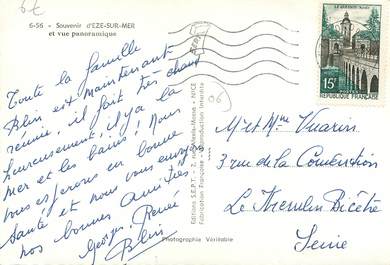 6€
6-56 - Souvenir d'EZE-SUR-MER
et vue panoramique
Toute la famille
Blin est maintenant
réunie, il fait très chaud
heureusement, il y a la
mer et les bains! Nous
vous espérons en bonne
santé et nous vous envoyons
nos bonnes amitiés
Georges, Renée
Blin
Editions S.E.P.T. - NICE
Fabrication Française - Reproduction Interdite
Photographie Véritable
(06)
LE QUESNOY
15F
POSTES
REPUBLIQUE FRANÇAISE
M. et Mme Vuarin
3 rue de la Convention
Le Kremlin Bicêtre
Seine